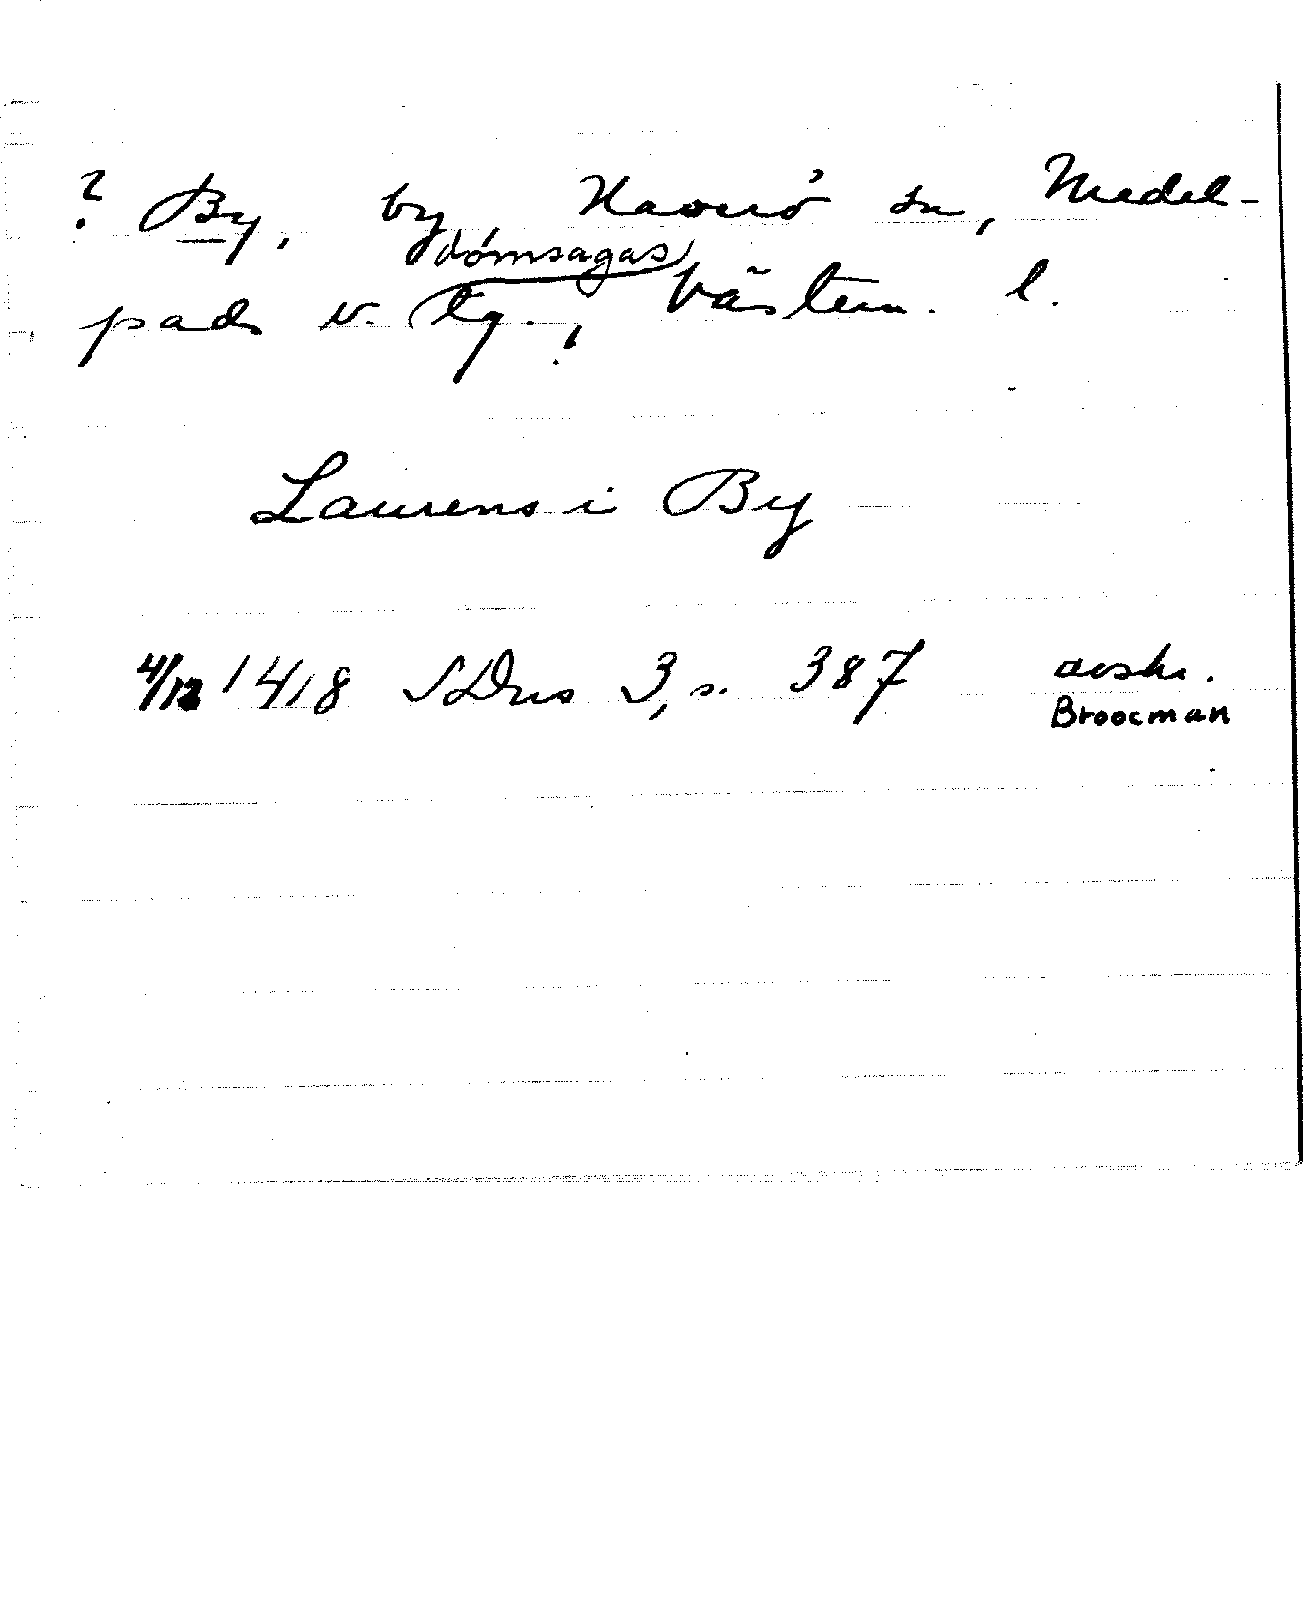 ? By, by Haverö sn, Medel-
domsagas
pads v. tg., Västern. l.
Laurens i By
4/12 1418 SDns 3, s. 387 avskr.
Broocman